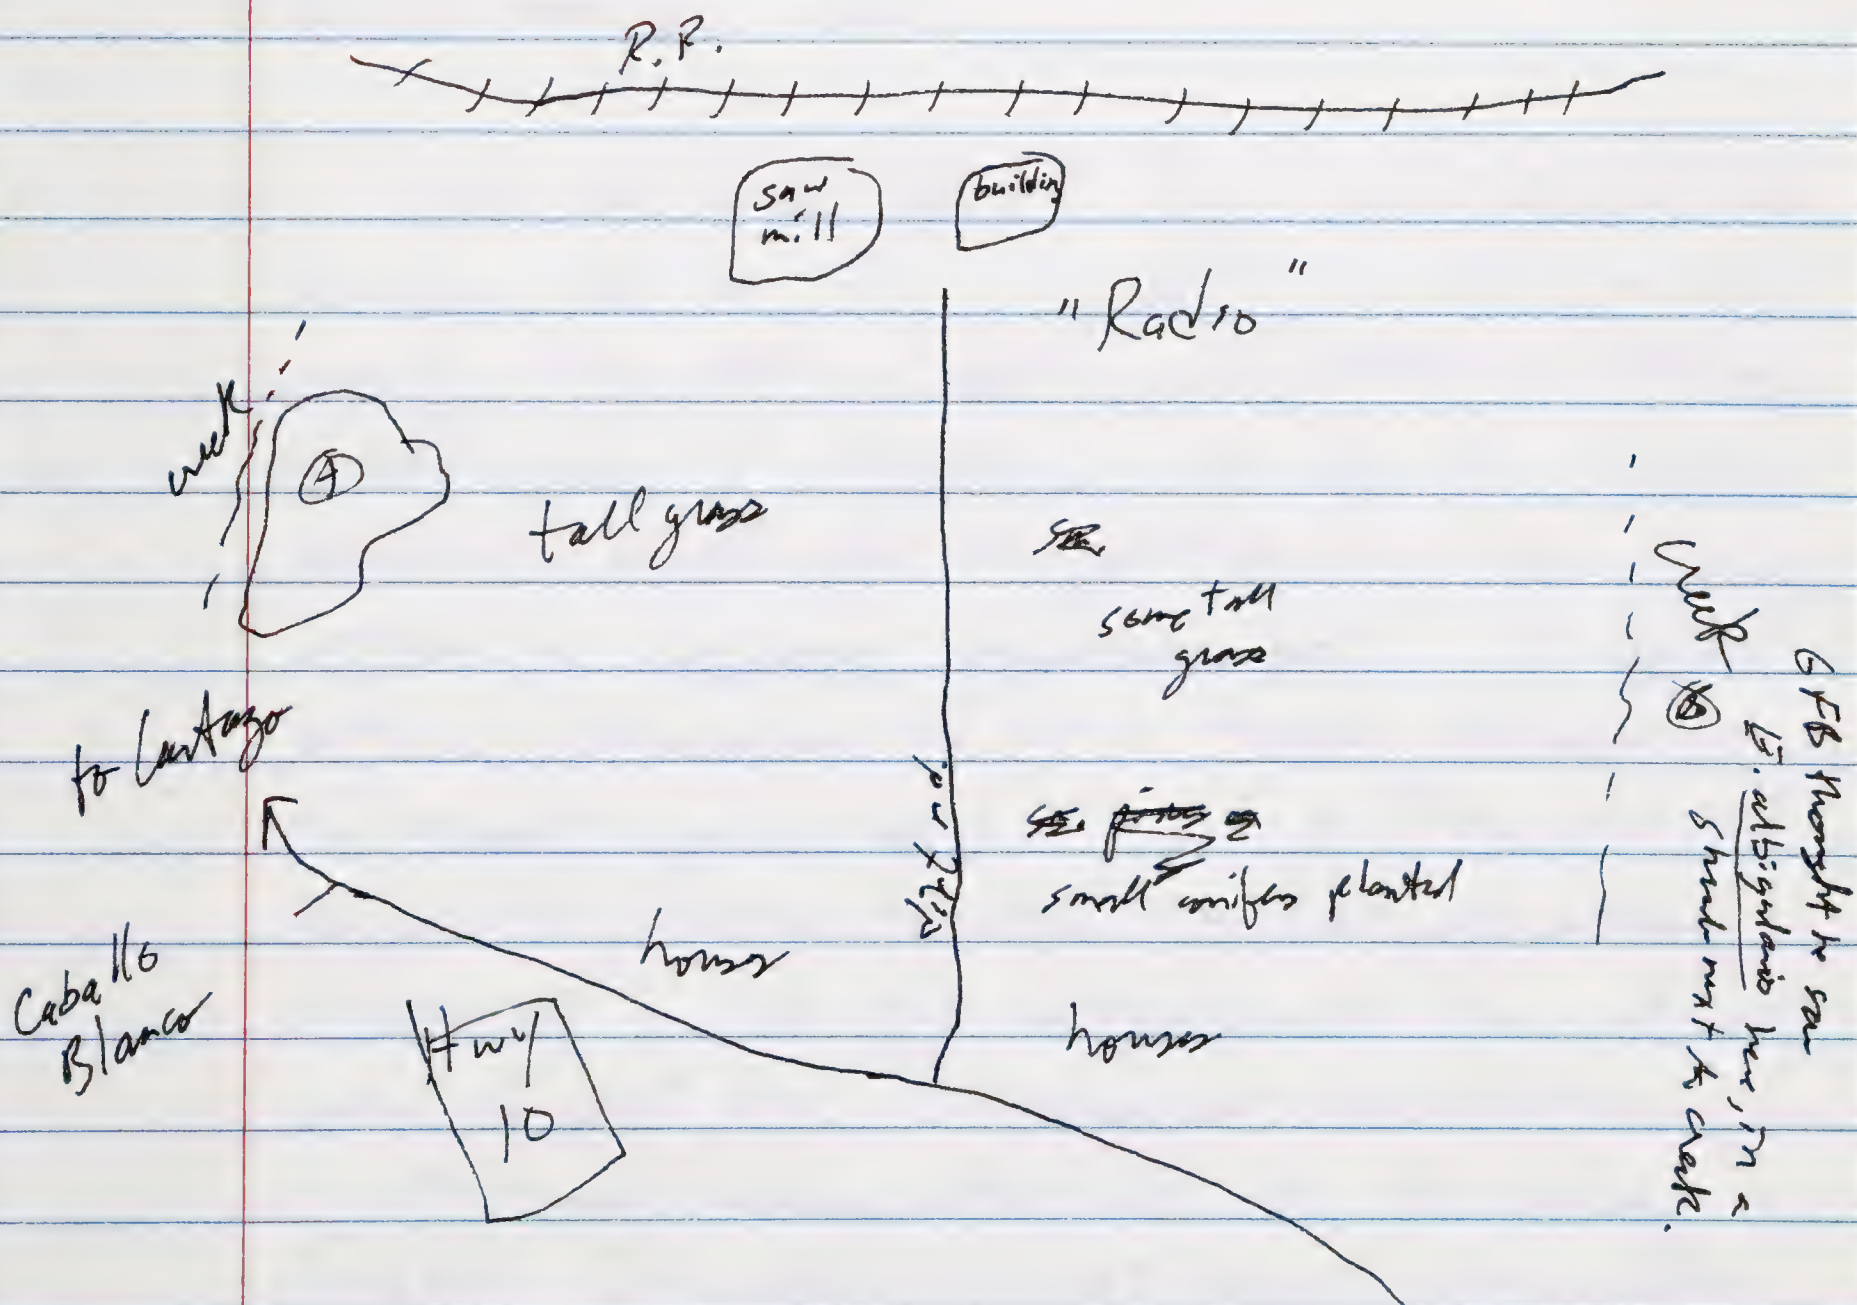 R.R.
saw
mill
building
"Radio"
creek
4
tall grass
some tall
grass
Creek
to Cartago
dirt rd.
small conifers planted
houses
houses
Caballo
Blanco
Hwy
10
GFB thought he saw
albigularis here, in a
shrub next to creek.